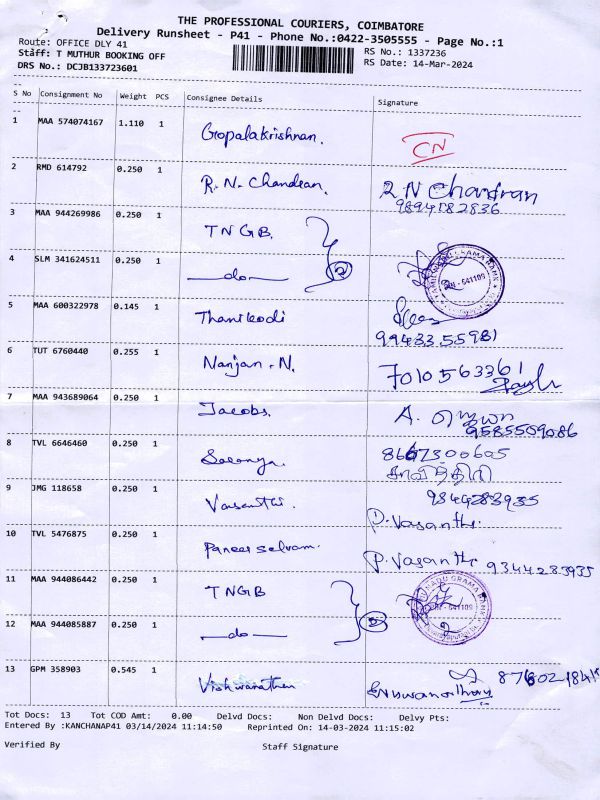 THE PROFESSIONAL COURIERS, COIMBATORE
Delivery Runsheet - P41 - Phone No.:0422-3505555 - Page No.:1
Route: OFFICE DLY 41
RS No.: 1337236
Staff: T MUTHUR BOOKING OFF
RS Date: 14-Mar-2024
DRS No.: DCJB133723601
S No Consignment No Weight PCS Consignee Details Signature
1 MAA 574074167 1.110 1 Gopalakrishnan. CN
2 RMD 614792 0.250 1 R. N. Chandran. R N Chandran
9894082836
3 MAA 944269986 0.250 1 TNGB.
4 SLM 341624511 0.250 1 —do— 2
641109
5 MAA 600322978 0.145 1 Thanikodi
9943355981
6 TUT 6760440 0.255 1 Nanjan. N. 7010563361
7 MAA 943689064 0.250 1 Jacobs. A.
9585559086
8 TVL 6646460 0.250 1 Saranya. 8667300605
9 JMG 118658 0.250 1 Vasanthi. 9344283935
P. Vasanthi.
10 TVL 5476875 0.250 1 Paneer selvam. P. Vasanthi 9344283935
11 MAA 944086442 0.250 1 TNGB
641109
12 MAA 944085887 0.250 1 —do— 2
13 GPM 358903 0.545 1 Vishwanathan
Tot Docs: 13 Tot COD Amt: 0.00 Delvd Docs: Non Delvd Docs: Delvy Pts:
Entered By :KANCHANAP41 03/14/2024 11:14:50 Reprinted On: 14-03-2024 11:15:02
Verified By Staff Signature